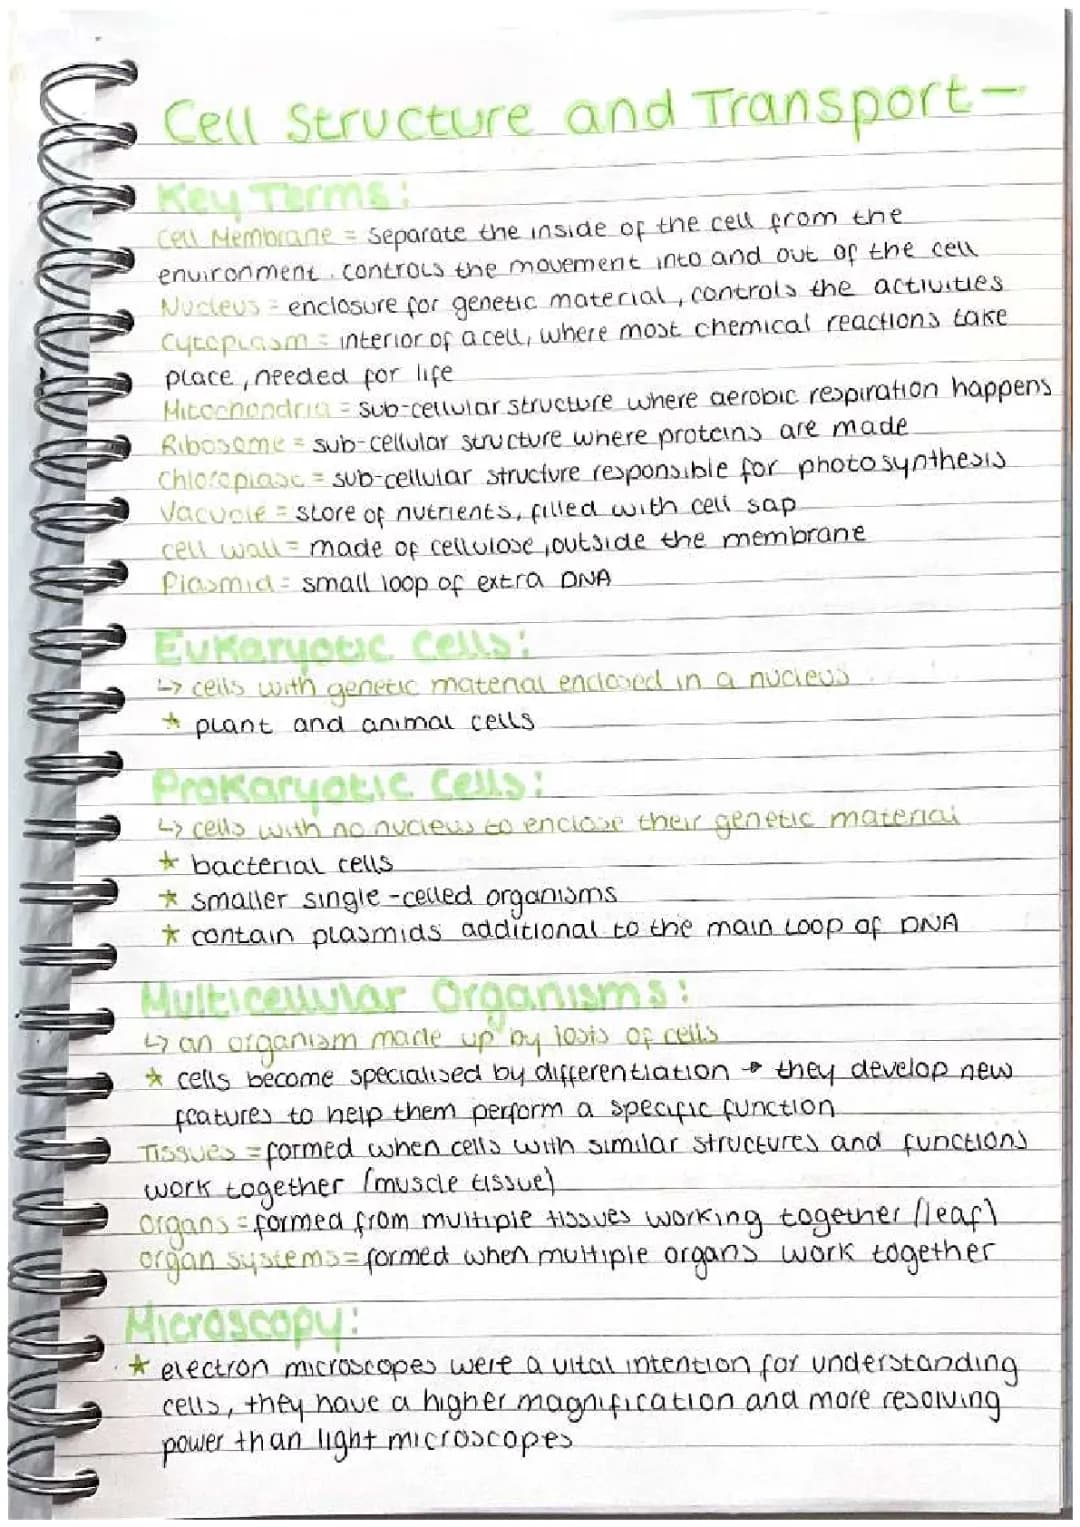 Cell Structure and Transport -
Key Terms:
Cell Membrane = separate the inside of the cell from the
environment. controls the movement into and out of the cell
Nucleus = enclosure for genetic material, controls the activities
Cytoplasm = interior of a cell, where most chemical reactions take
place, needed for life
Mitochondria = sub-cellular structure where aerobic respiration happens
Ribosome = sub-cellular structure where proteins are made
Chloroplast = sub-cellular structure responsible for photosynthesis
Vacuole = store of nutrients, filled with cell sap
cell wall = made of cellulose, outside the membrane
Plasmid = small loop of extra DNA
Eukaryotic Cells:
↳ cells with genetic material enclosed in a nucleus
* plant and animal cells
Prokaryotic Cells:
↳ cells with no nucleus to enclose their genetic material
* bacterial cells
* smaller single-celled organisms
* contain plasmids additional to the main loop of DNA
Multicellular Organisms:
↳ an organism made up by losts of cells
* cells become specialised by differentiation → they develop new
features to help them perform a specific function
Tissues = formed when cells with similar structures and functions
work together (muscle tissue)
organs = formed from multiple tissues working together (leaf)
organ systems = formed when multiple organs work together
Microscopy:
* electron microscopes were a vital intention for understanding
cells, they have a higher magnification and more resolving
power than light microscopes